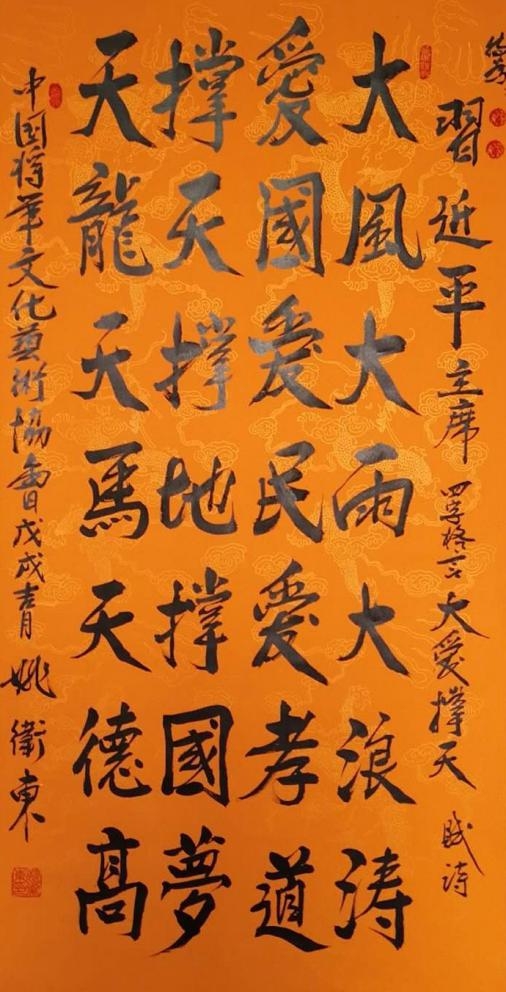 習近平主席四字格言大爱撑天賦诗
大風大雨大浪涛
愛國愛民愛孝道
撑天撑地撑國夢
天龍天馬天德高
中国将军文化藝術協會戊戌青月姚衛東